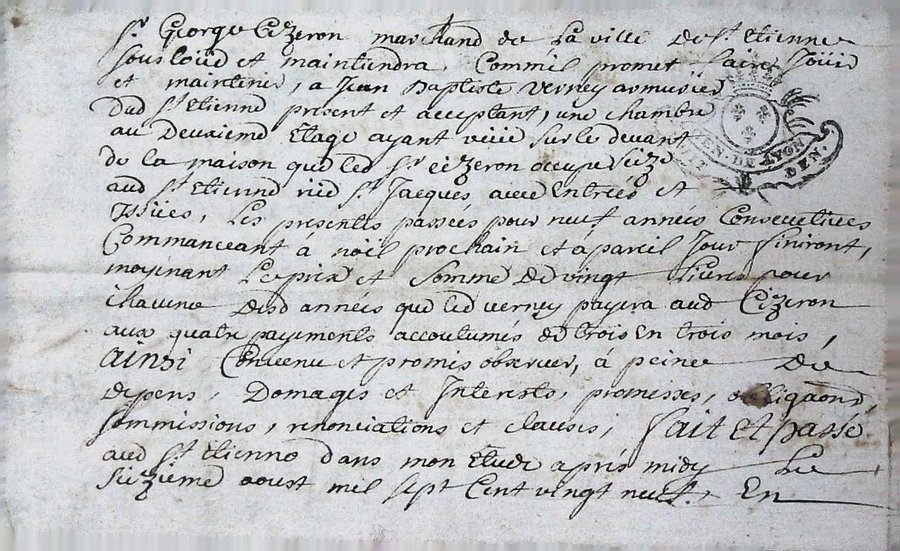 Sr. George Cizeron marchand de La ville de St Etienne
sousloüe et maintiendra, Comm'il promet faire Joüir
et maintenir, a Jean Baptiste Verney armurier
dud St Etienne present et acceptant, une chambre
au deuxieme Etage ayant veüe sur le devant
de la maison que led Sr Cizeron occupe size
aud St Etienne rüe St Jacques, avec Entrées et
Issües, Les presentes passées pour neuf années Consecutives
Commanceant à noël prochain et a pareil Jour finiront,
moyenant Le prix et somme de vingt livres pour
chacune desd années que led Verney payera aud Cizeron
aux quatre payements accoutumés de trois en trois mois,
ainsi Convenu et promis observer, à peine de
depens, Domages et Interests, promesses, obligaons,
sommissions, renonciations et clauses, fait et passé
aud St Etienne dans mon Etude après midy Le
Sizième aoust mil sept Cent vingt neuf. En
GEN. DE LYON
DEN.